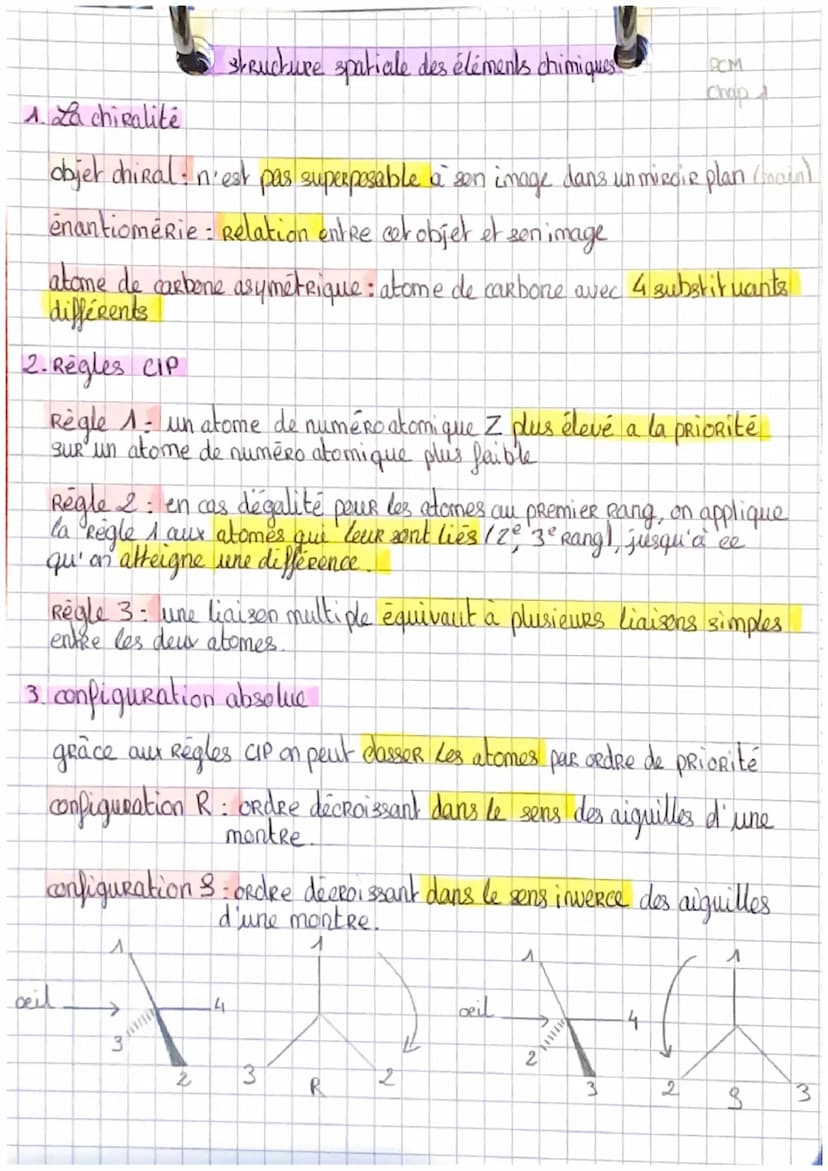 structure spatiale des éléments chimiques
PCM
Chap 1
1. La chiralité
objet chiral : n'est pas superposable à son image dans un miroir plan (main)
énantiomérie : relation entre cet objet et son image
atome de carbone asymétrique : atome de carbone avec 4 substituants
différents
2. Règles CIP
Règle 1 : un atome de numéro atomique Z plus élevé a la priorité
sur un atome de numéro atomique plus faible
Règle 2 : en cas d'égalité pour les atomes au premier rang, on applique
la règle 1 aux atomes qui leur sont liés (2e, 3e rang), jusqu'à ce
qu'on atteigne une différence.
Règle 3 : une liaison multiple équivaut à plusieurs liaisons simples
entre les deux atomes.
3. configuration absolue
grâce aux Règles CIP on peut classer les atomes par ordre de priorité
configuration R : ordre décroissant dans le sens des aiguilles d'une
montre.
configuration S : ordre décroissant dans le sens inverce des aiguilles
d'une montre.
1
oeil
4
3
2
1
3
R
2
1
oeil
4
2
3
1
2
S
3